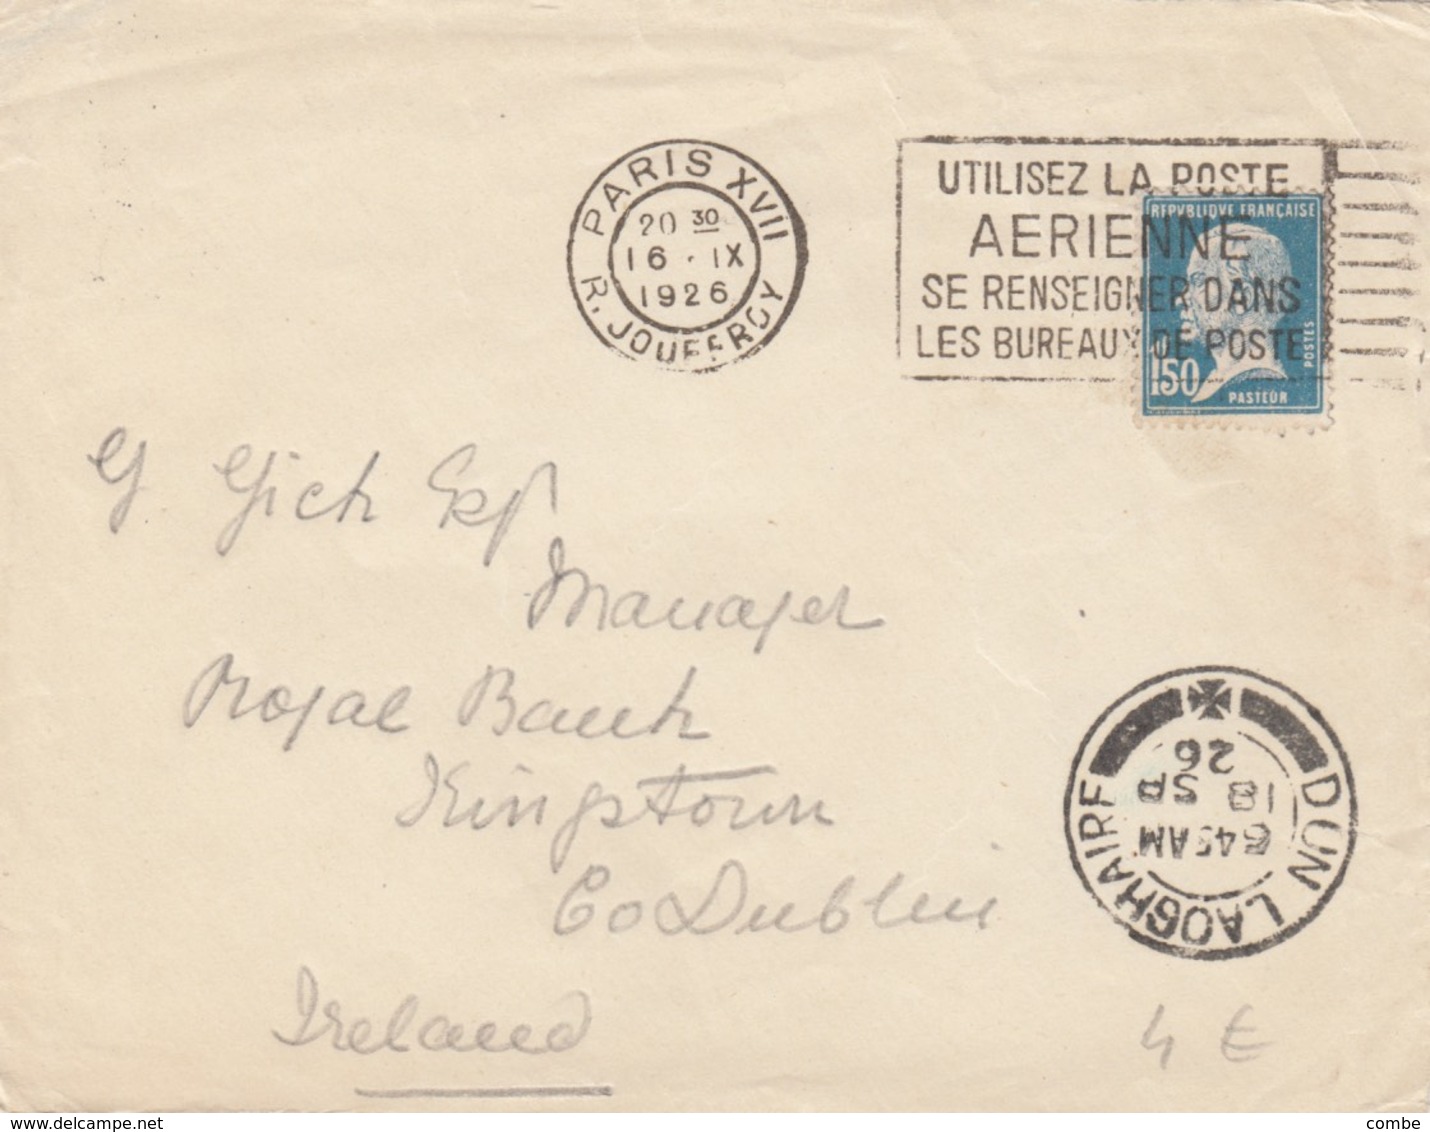 PARIS XVII
20 30
16 · IX
1926
R. JOUFFROY
UTILISEZ LA POSTE
AERIENNE
SE RENSEIGNER DANS
LES BUREAUX DE POSTE
REPVBLIQVE FRANÇAISE
POSTES
1F50
PASTEUR
G
Manager
Royal Bank
Kingstown
Co Dublin
Ireland
DUN LAOGHAIRE
6 45 AM
18 SP
26
4 €
delcampe.net
combe